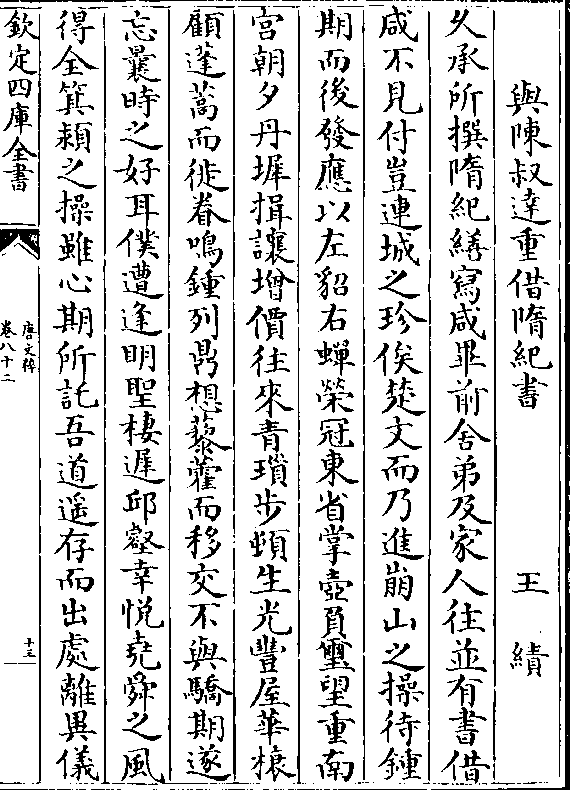 與陳叔達重借隋紀書 王績
久承所撰隋紀繕寫咸畢前舍弟及家人往並有書借
咸不見付豈連城之珍俟楚文而乃進崩山之操待鍾
期而後發應以左貂右蟬榮冠東省掌壺負璽望重南
宮朝夕丹墀揖讓增價往來青瑣步頓生光豐屋華榱
顧蓬蒿而徙眷鳴鍾列鼎想藜藿而移交不與驕期遂
忘曩時之好耳僕遭逢明聖棲遲邱壑幸悅堯舜之風
得全箕潁之操雖心期所託吾道遥存而出處離異儀
欽定四庫全書
唐文粹
卷八十二
十三